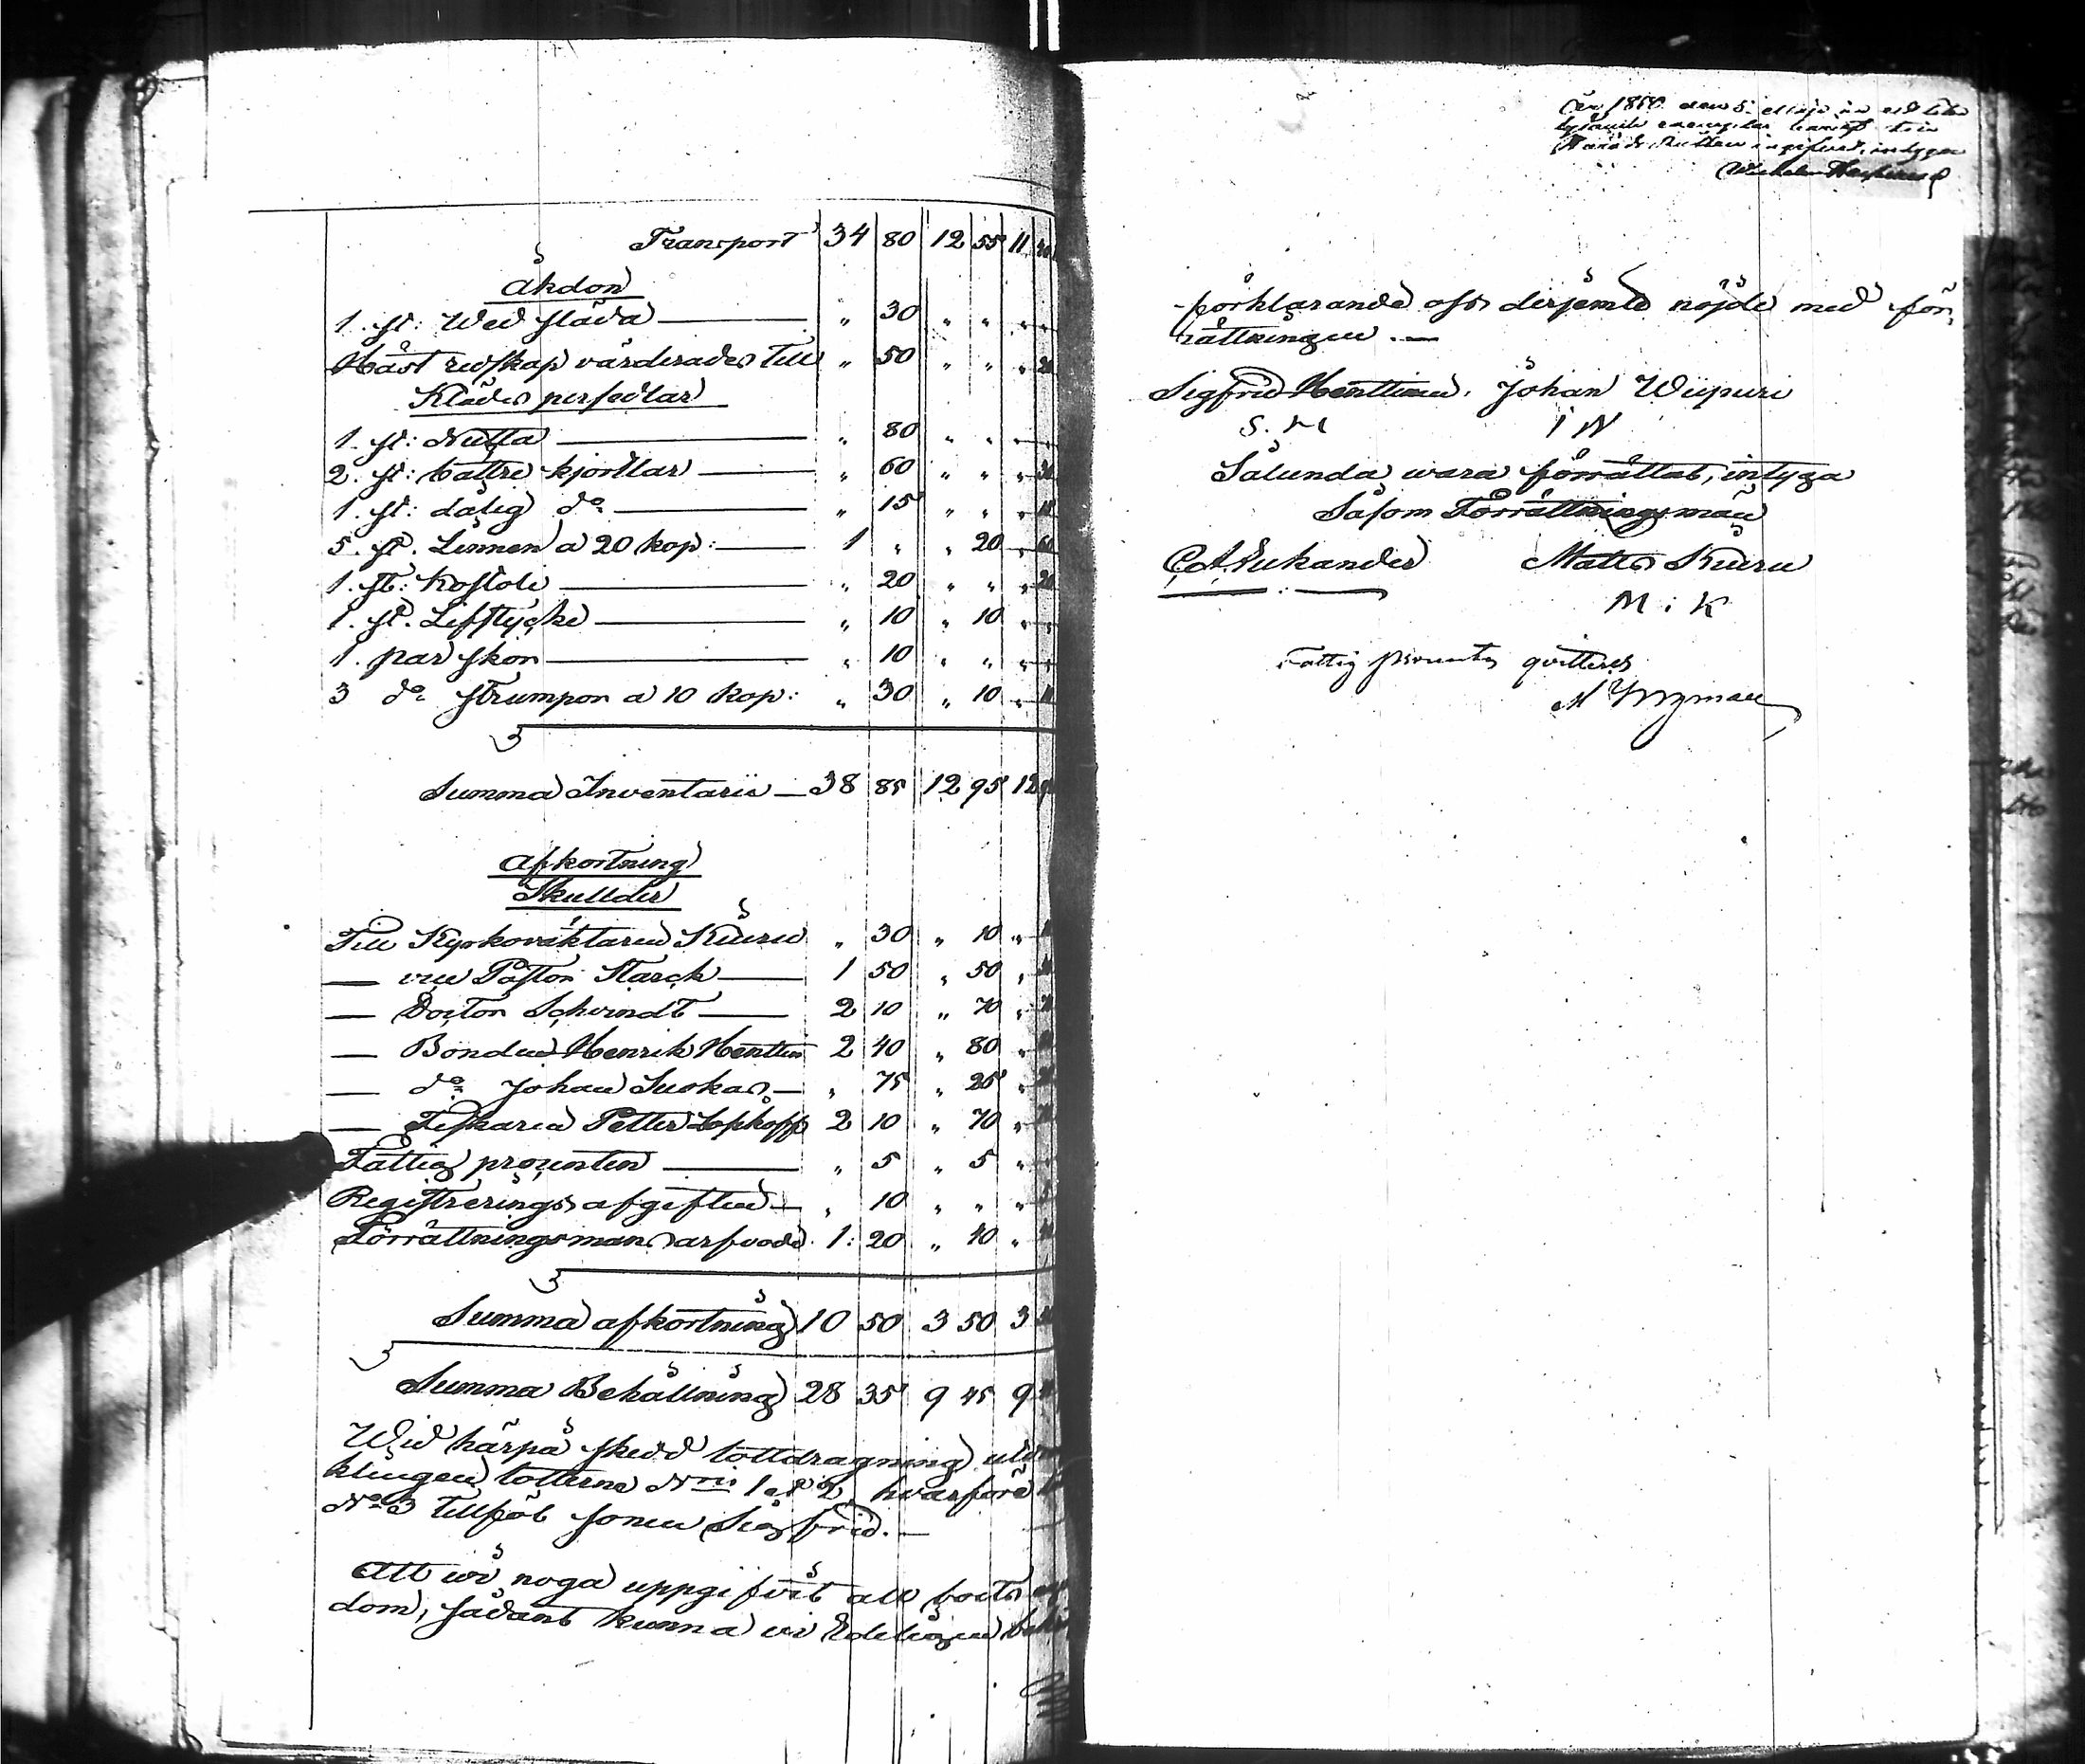 Transport 34 80 12 55 11
Åkdon
1. st: Wed släda — " 30 " " " "
Häst redskap värderades till " 50 " " " 20
Klädes persedlar
1. st: Nutta — " 80 " " "
2. st: bättre kjortlar — " 60 " " " 30
1. st: dålig do — " 15 " " "
5. st. Linnen a 20 kop: — 1 " " 20 " 60
1. st: Kostoli — " 20 " " " 20
1. st. Lifstycke — " 10 " 10 " "
1. par skor — " 10 " " " "
3 do strumpor a 10 kop: " 30 " 10 "
Summa Inventarii — 38 85 12 95 12
Afkortning
Skullder
Till Kyrkovaktaren Kiuru " 30 " 10 "
— Pastor Starck — 1 50 " 50 "
— Doctor Schvindt — 2 10 " 70 "
— Bonden Henrik Henttin 2 40 " 80 "
— do Johan Suokas — " 75 " 25 "
— Fiskaren Petter Lopkoff 2 10 " 70 "
Fattig procenten — " 5 " 5 "
Registrerings afgiften — " 10 " " "
Förrättningsman arfvode 1: 20 " 40 "
Summa afkortning 10 50 3 50 3
Summa Behållning 28 35 9 45 9
Wid härpå skedd lottdragning
lotterne Nris 1 et 2, hvarföre
No 3 tillföll sonen Sigfrid. —
Att wi noga uppgifvit all boets
dom, sådant kunna vi Edeligen
År 1850 den 5 Maji är ett
exemplar
Härads Rätten ingifvet, intygar
Wilhelm
förklarande oss derjemte nöjde med för-
rättningen. —
Sigfrid Henttinen, Johan Wiipuri
S. H I W
Sålunda wara förrättat, intyga
Såsom Förrättningsmän
C. A. Mattes Kiuru
M : K
Fattig procenten qvitteres
M